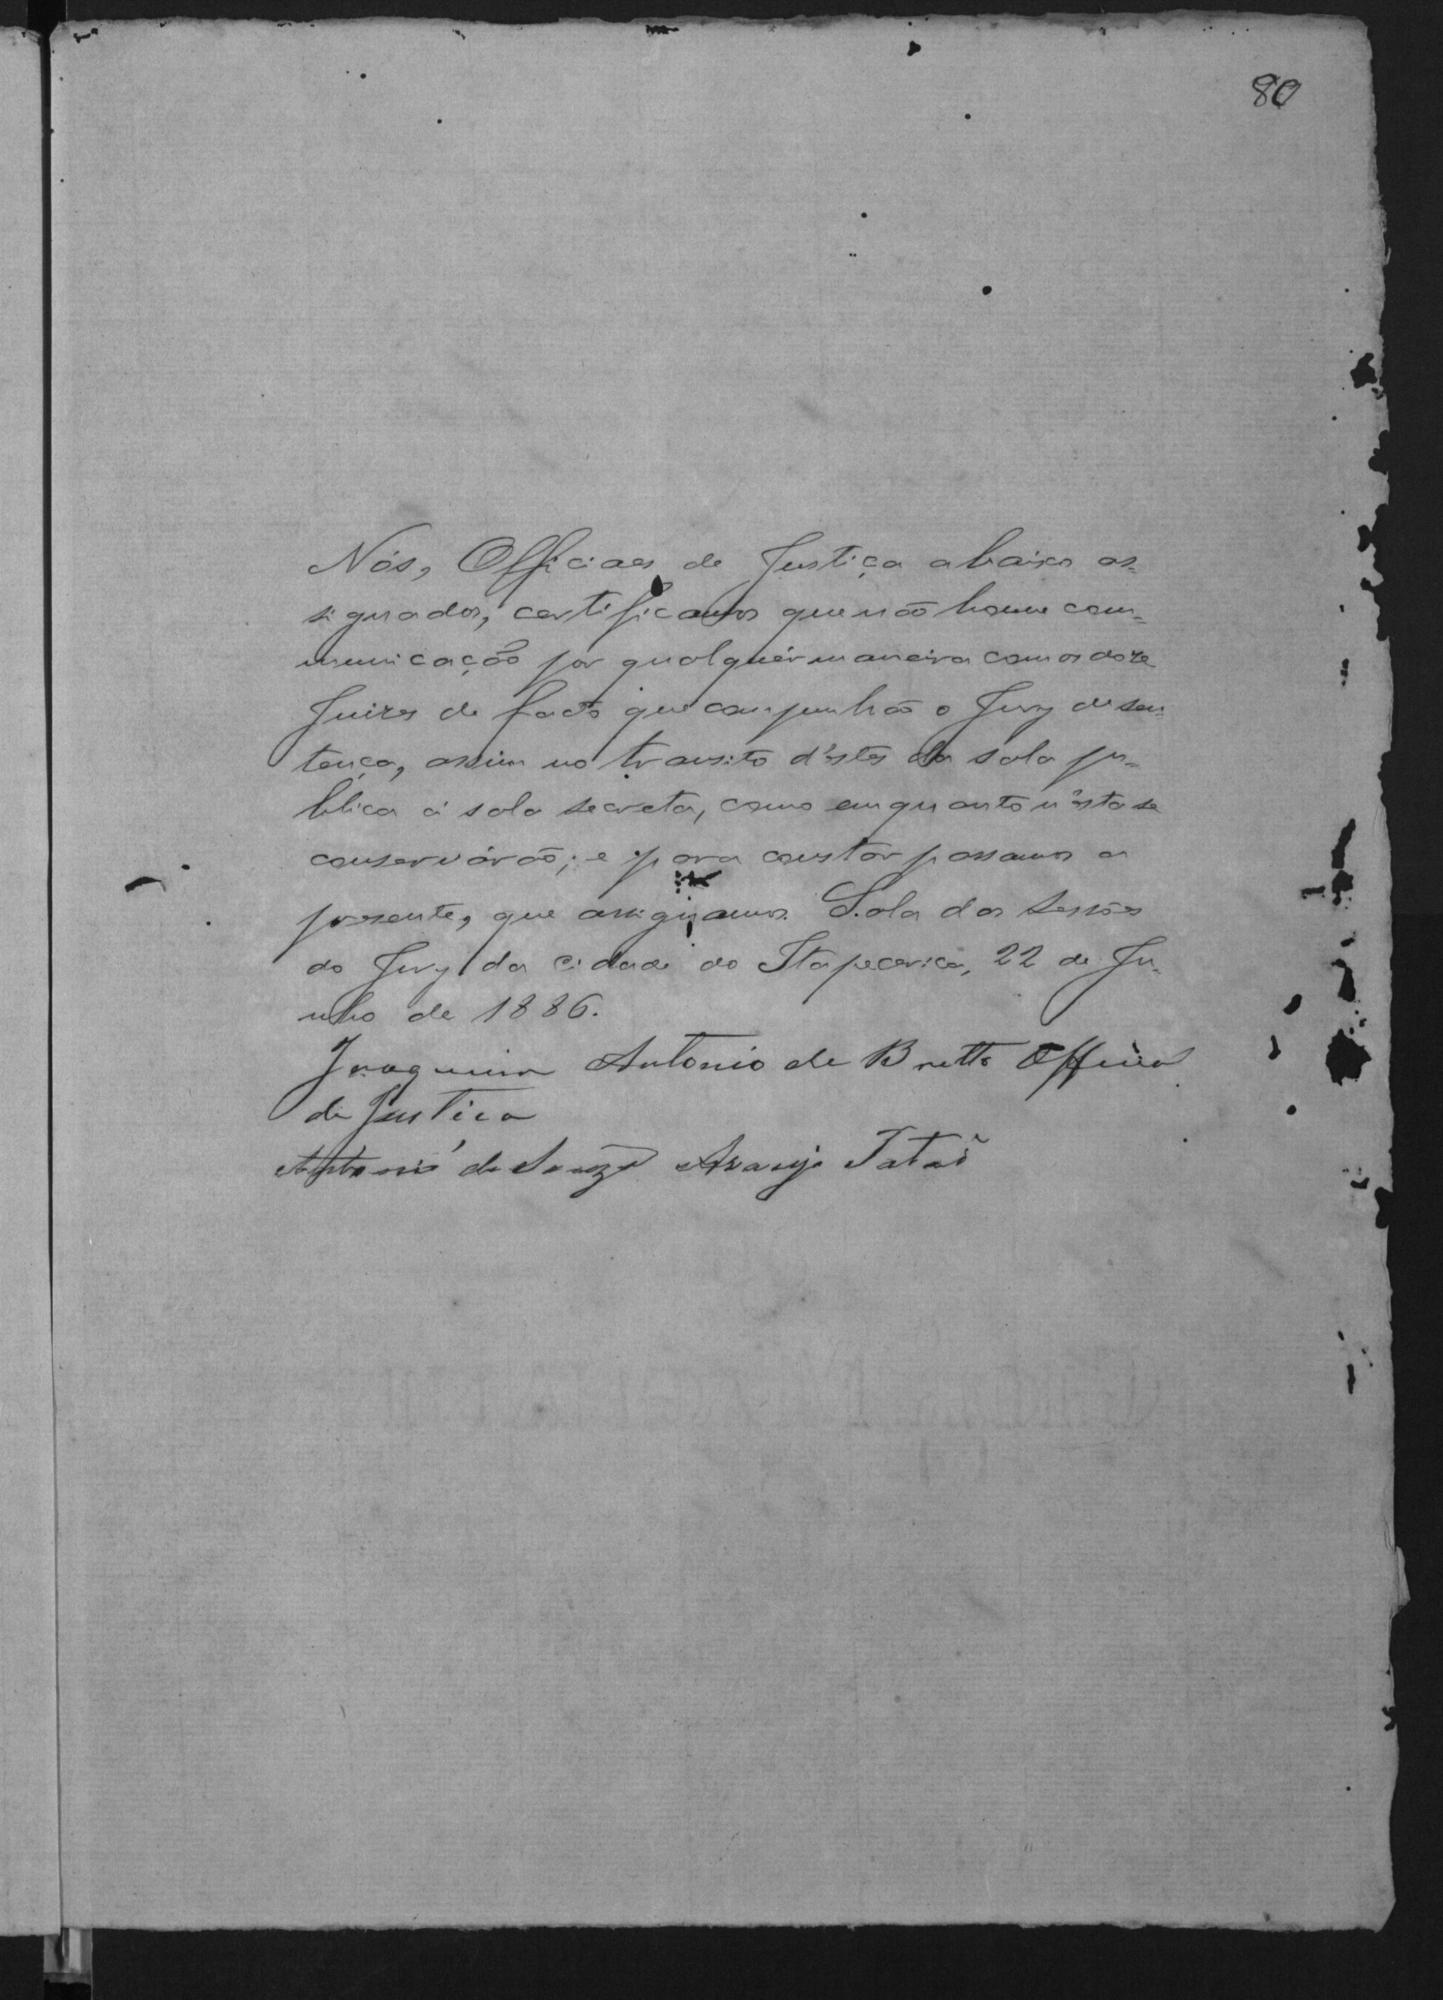 80
Nós, Officiaes de Justiça abaixo as-
signados, certificamos que não houve com-
municação por qualquér maneira com os doze
Juizes de facto que compunhão o Jury de sen-
tença, assim no transito d'estes da sala pu-
blica á sala secreta, como emquanto n'esta se
conservárão; e para constar passamos a
presente, que assignamos. Sala das Sessões
do Jury da cidade do Itapecerica, 22 de Ju-
nho de 1886.
Joaquim Antonio de Britto Official
de Justica
Antonio de Souza Araujo